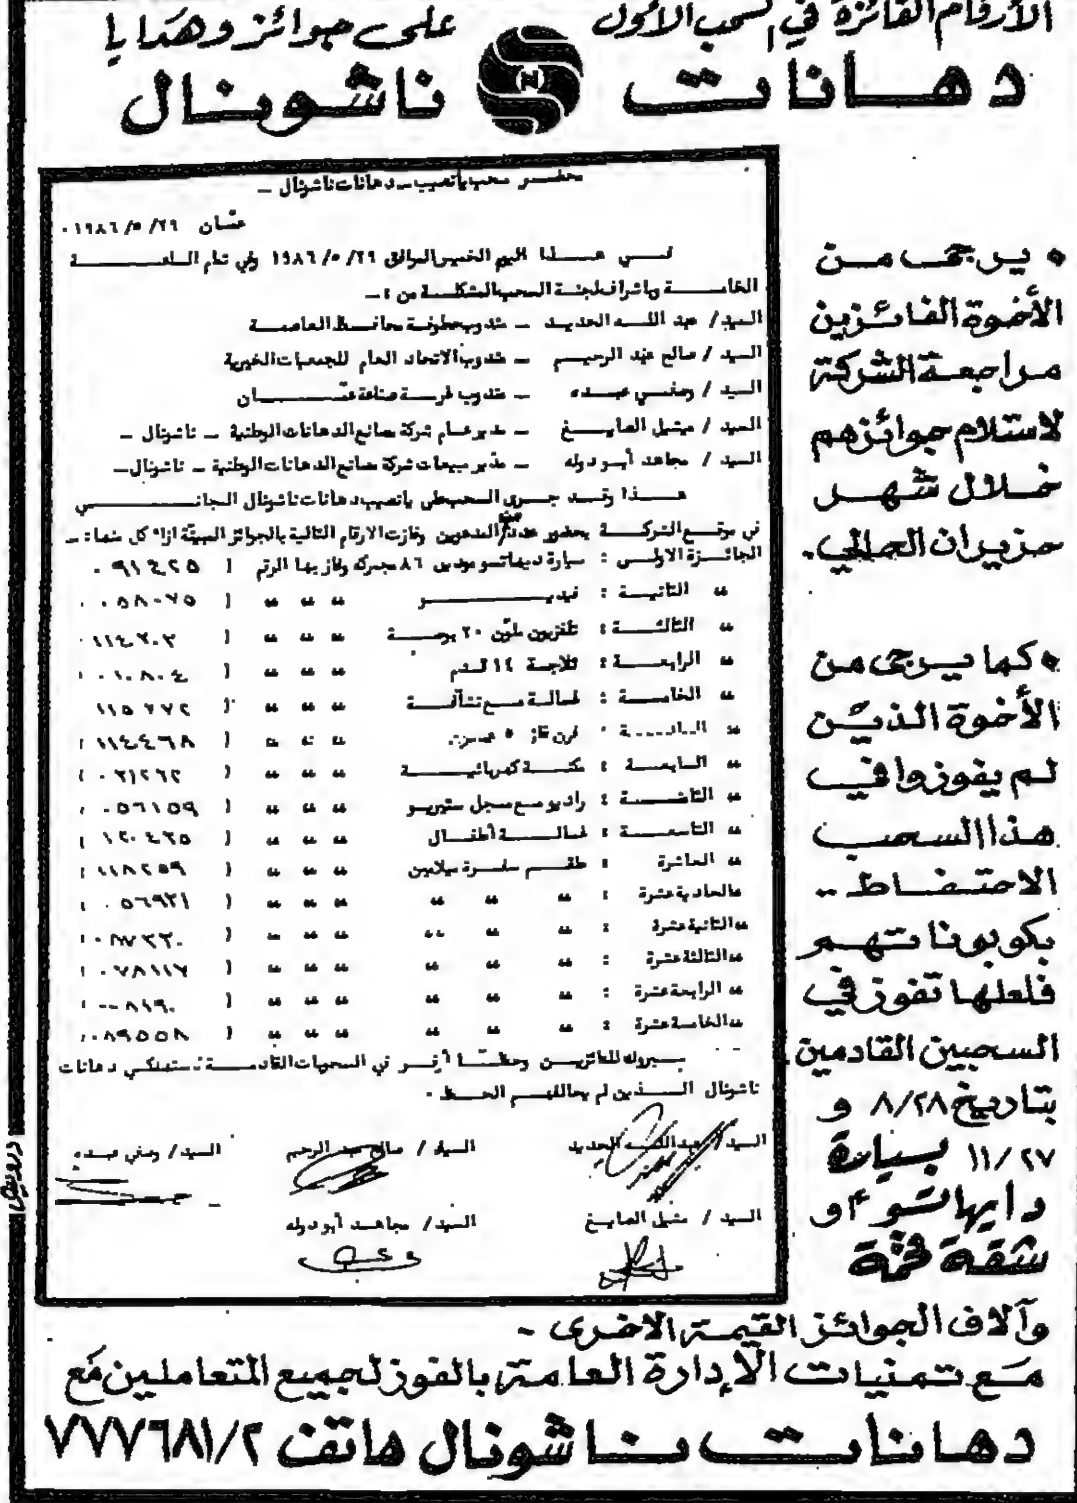 الأرقام الفائزة في السحب الأول على جوائز وهدايا
دهانات ناشونال
محضر سحب يانصيب ـ دهانات ناشونال ـ
عمّان ٢٩/ ٥/ ١٩٨٦ ٠
فـي هـذا اليوم الخميس الموافق ٢٩/ ٥/ ١٩٨٦ وفي تمام الساعة
الخامسة وباشراف لجنة السحب المشكلة من :ـ
السيد/ عبد الله الحديد ـ مندوب عطوفة محافظ العاصمة
السيد / صالح عبد الرحيم ـ مندوب الاتحاد العام للجمعيات الخيرية
السيد / وصفي عبده ـ مندوب غرفة صناعة عمّان
السيد / ميشيل الصايغ ـ مدير عام شركة مصانع الدهانات الوطنية ـ ناشونال ـ
السيد / مجاهد أبو دوله ـ مدير مبيعات شركة مصانع الدهانات الوطنية ـ ناشونال ـ
هـذا وقد جرى السحب على يانصيب دهانات ناشونال المجاني
في موقع الشركة بحضور عدد من المدعوين وفازت الارقام التالية بالجوائز المبينة ازاء كل منها :ـ
الجائزة الاولى : سيارة ديهاتسو موديل ٨٦ مجمركة وفاز بها الرقم ( ٠٩١٤٢٥
" الثانية : فيديو " " " ( ٠٥٨٠٧٥
" الثالثة : تلفزيون ملوّن ٢٠ بوصة " " " ( ١١٤٢٠٣
" الرابعة : ثلاجة ١٤ قدم " " " ( ٠١٠٨٠٤
" الخامسة : غسالة مع نشافة " " " ( ١١٥٧٧٢
" السادسة : فرن غاز ٥ " " " ( ١١٤٤٦٨
" السابعة : مكنسة كهربائية " " " (
" الثامنة : راديو مع مسجل ستيريو " " " ( ٠٥٦١٥٩
" التاسعة : غسالة أطفال " " " ( ١٢٠٤٣٥
" العاشرة : طقم سفرة ميلامين " " " ( ١١٨٢٥٩
" الحادية عشرة : " " " " " " ( ٠٥٦٩٣١
" الثانية عشرة : " " " " " " (
" الثالثة عشرة : " " " " " " ( ٠٧٨١١٧
" الرابعة عشرة : " " " " " " ( ٠٠٨١٩٠
" الخامسة عشرة : " " " " " " ( ٠٨٩٥٥٨
مبروك للفائزين وحظا أوفر في السحوبات القادمة لمستهلكي دهانات
ناشونال الـذين لم يحالفهم الحـظ ٠
السيد/ عبدالله الحديد السيد / صالح عبد الرحيم السيد/ وصفي عبده
السيد / ميشيل الصايغ السيد/ مجاهد أبو دوله
• يرجى من
الأخوة الفائزين
مراجعة الشركة
لاستلام جوائزهم
خلال شهر
حزيران الحالي.
• كما يرجى من
الأخوة الذين
لم يفوزوا في
هذا السحب
الاحتفاظ ..
بكوبوناتهم
فلعلها تفوز في
السحبين القادمين
بتاريخ ٨/٢٨ و
١١/٢٧ بسيارة
دايهاتسو ٤ و
شقة فخمة
وآلاف الجوائز القيمة الاخرى ـ
مع تمنيات الإدارة العامة بالفوز لجميع المتعاملين مع
دهانات ناشونال هاتف ٧٧٧٦٨١/٢
درويش